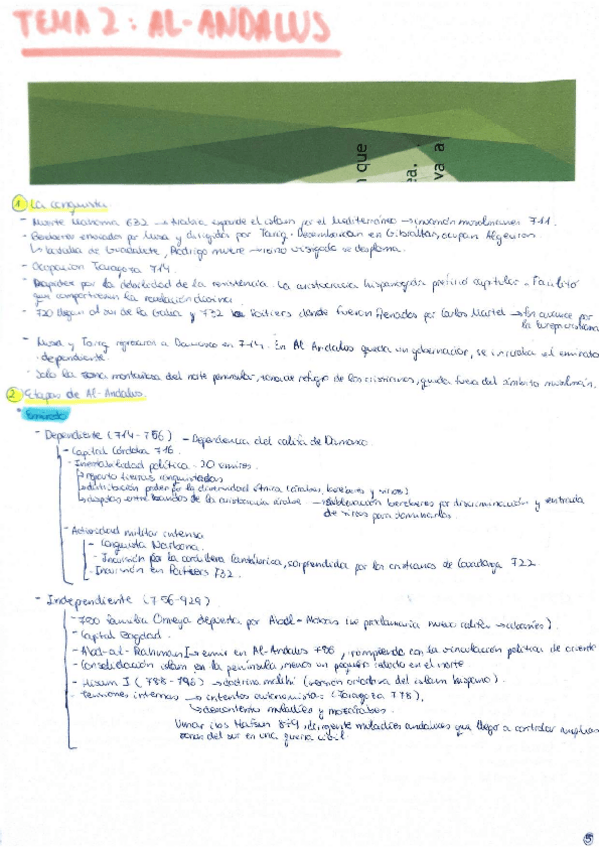 TEMA 2: AL-ANDALUS
n que
ea.
va a
1 La conquista.
- Muerte Mahoma 632 → Nabia expande el islam por el Mediterráneo → invasión musulmana 711.
- Bereberes enviados por Musa y dirigidos por Tariq. Desembarcan en Gibraltar, ocupan Algeciras.
↳ batalla de Guadalete, Rodrigo muere → reino visigodo se desploma.
- Ocupación Zaragoza 714.
- Rapidez por la debilidad de la resistencia. La aristocracia hispanogoda prefirió capitular - Facilitó
que compartieran la
- 720 llegan al sur de la Galia y 732 Poitiers donde fueron frenados por Carlos Martel → fin avance por
la Europa cristiana
- Musa y Tariq regresaron a Damasco en 714. En Al Andalus queda un gobernador, se instaura el emirato
dependiente.
- Solo la zona montañosa del norte peninsular, zona de refugio de los cristianos, queda fuera del ámbito musulmán.
2 Etapas de Al-Andalus.
• Emirato
- Dependiente (714-756) - Dependencia del califa de Damasco.
- Capital Córdoba 716
- Inestabilidad política - 20 emires.
↳ reparto tierras conquistadas
↳ distribución poder por la diversidad étnica (árabes, bereberes y sirios)
↳ disputas entre bandos de la aristocracia árabe → sublevación bereberes por discriminación y entrada
de sirios para dominarlos.
- Actividad militar intensa
- Conquista Narbona.
- Incursión por la cordillera Cantábrica, sorprendida por los cristianos de Covadonga 722.
- Incursión en Poitiers 732.
- Independiente (756-929)
- 750 familia Omeya depuesta por Abdl- (se proclamaría nuevo califa → abasíes).
- Capital Bagdad.
- Abd-al-Rahman I → emir en Al-Andalus 756, rompiendo con la vinculación política de oriente
- Consolidación islam en la península, menos un pequeño reducto en el norte.
- Hisam I (788-796) → doctrina malikí (versión ortodoxa del islam hispano).
- Tensiones internas → intentos autonomistas (Zaragoza 778),
↳ descontento muladíes y mozárabes.
Umar ibs Hafsun 879, dirigente muladíes andaluces que llegó a controlar amplias
zonas del sur en una guerra civil.
5